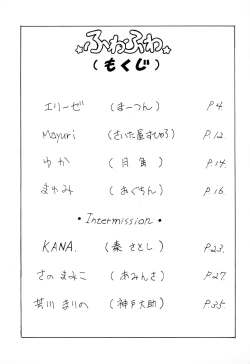 ふわふわ
(もくじ)
エリーゼ (まーつん) P.4.
Mayuri (さいた屋すぴゅう) P.12.
ゆか (月角) P.14.
まゆみ (あぐちん) P.16.
• Intermission •
KANA. (秦 さとし) P.23.
さの まみこ (あみんさ) P.27.
まりの (神戸大助) P.35.